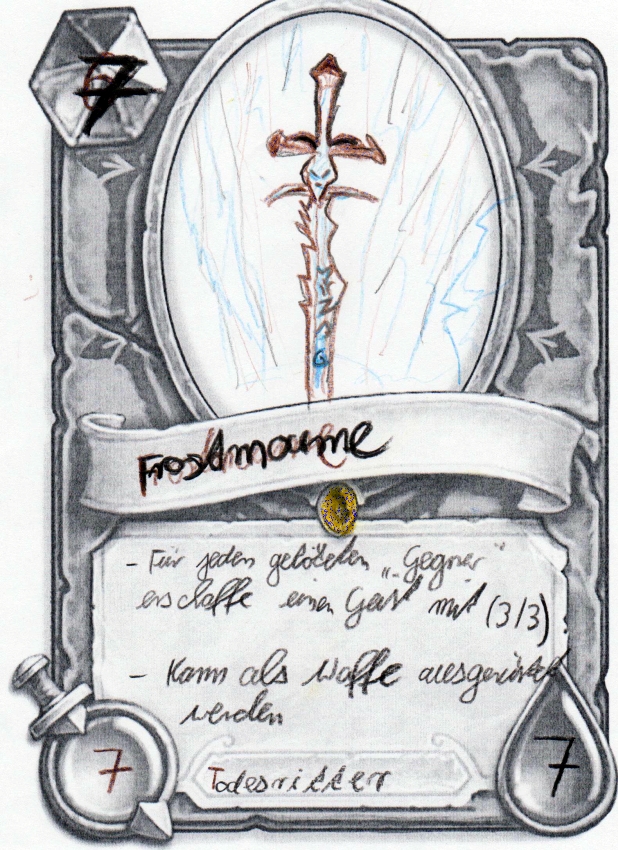 7
Frostmourne
- Für jeden getöteten „Gegner"
erschaffe einen Geist mit (3/3)
- Kann als Waffe ausgerüstet
werden
7
Todesritter
7